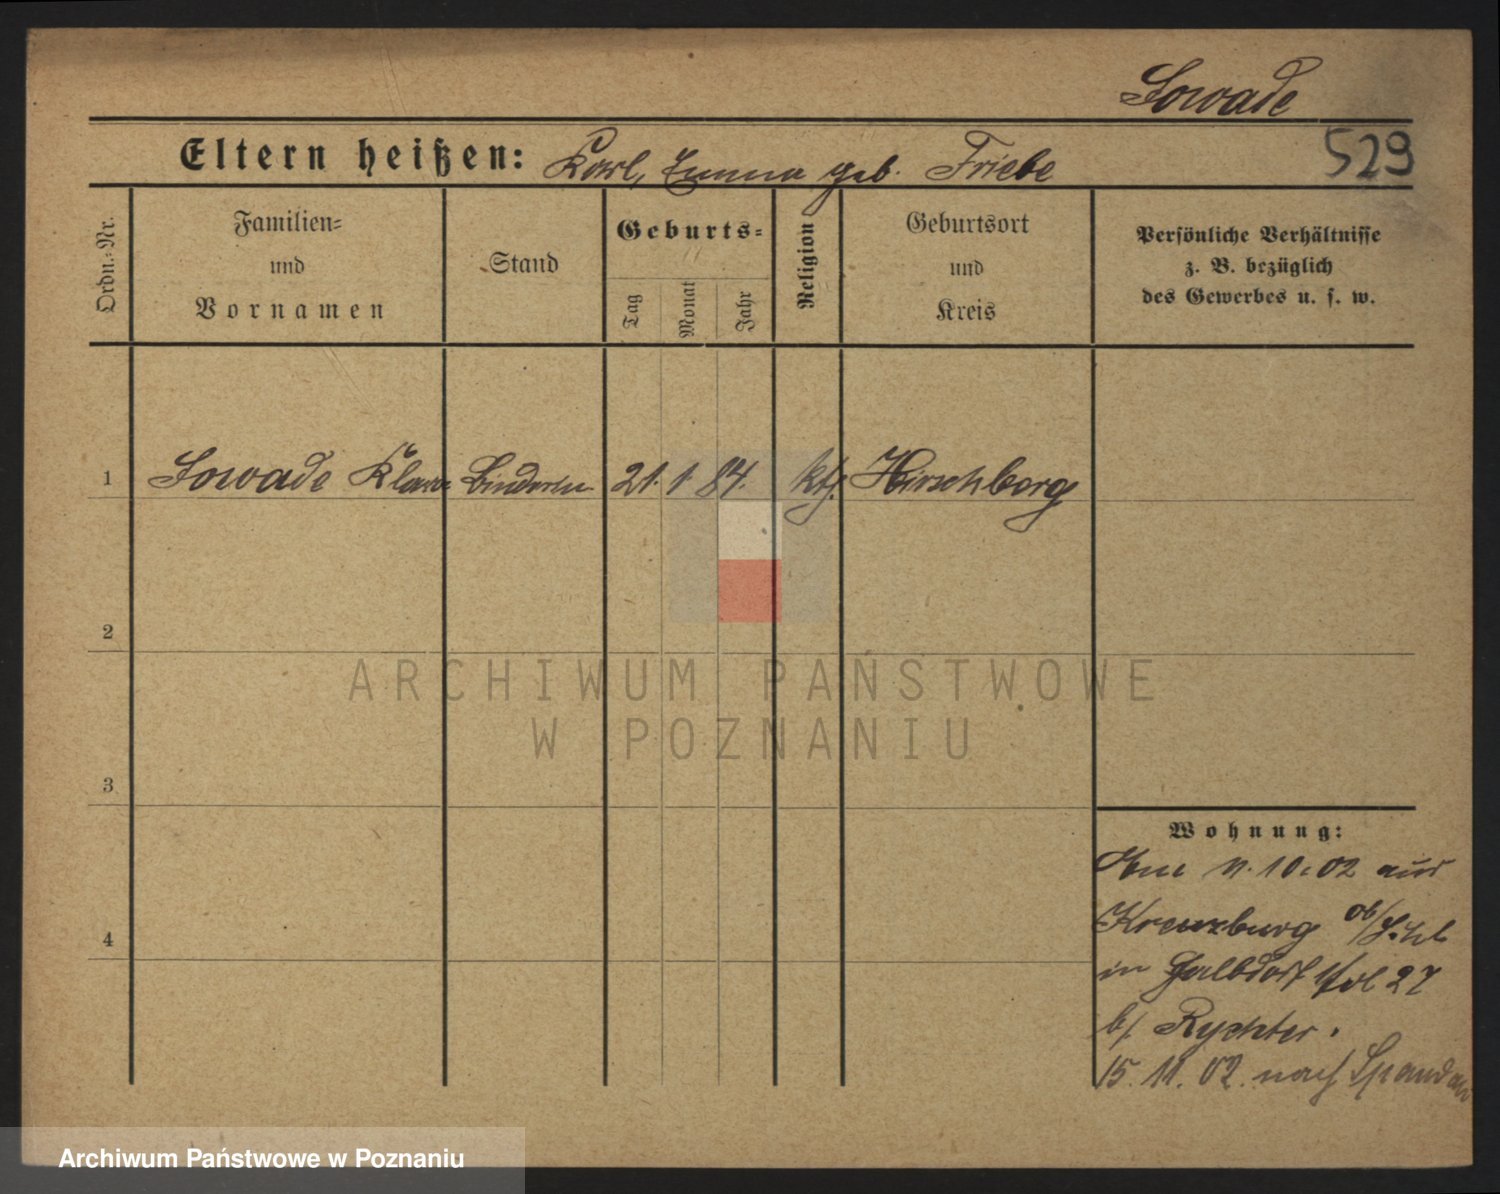 Sowade
529
Eltern heißen: Karl, Emma geb. Friebe
Ordn.-Nr.
Familien-
und
Vornamen
Stand
Geburts-
Tag
Monat
Jahr
Religion
Geburtsort
und
Kreis
Persönliche Verhältnisse
z. B. bezüglich
des Gewerbes u. s. w.
1 Sowade Klara Binderin 21. 1. 84. kth. Hirschberg
2
3
4
ARCHIWUM PAŃSTWOWE
W POZNANIU
Wohnung:
11.10.02 aus
Kreuzburg ob/Schl
in 27
b/ Rychter.
15. 11. 02. nach Spandau
Archiwum Państwowe w Poznaniu